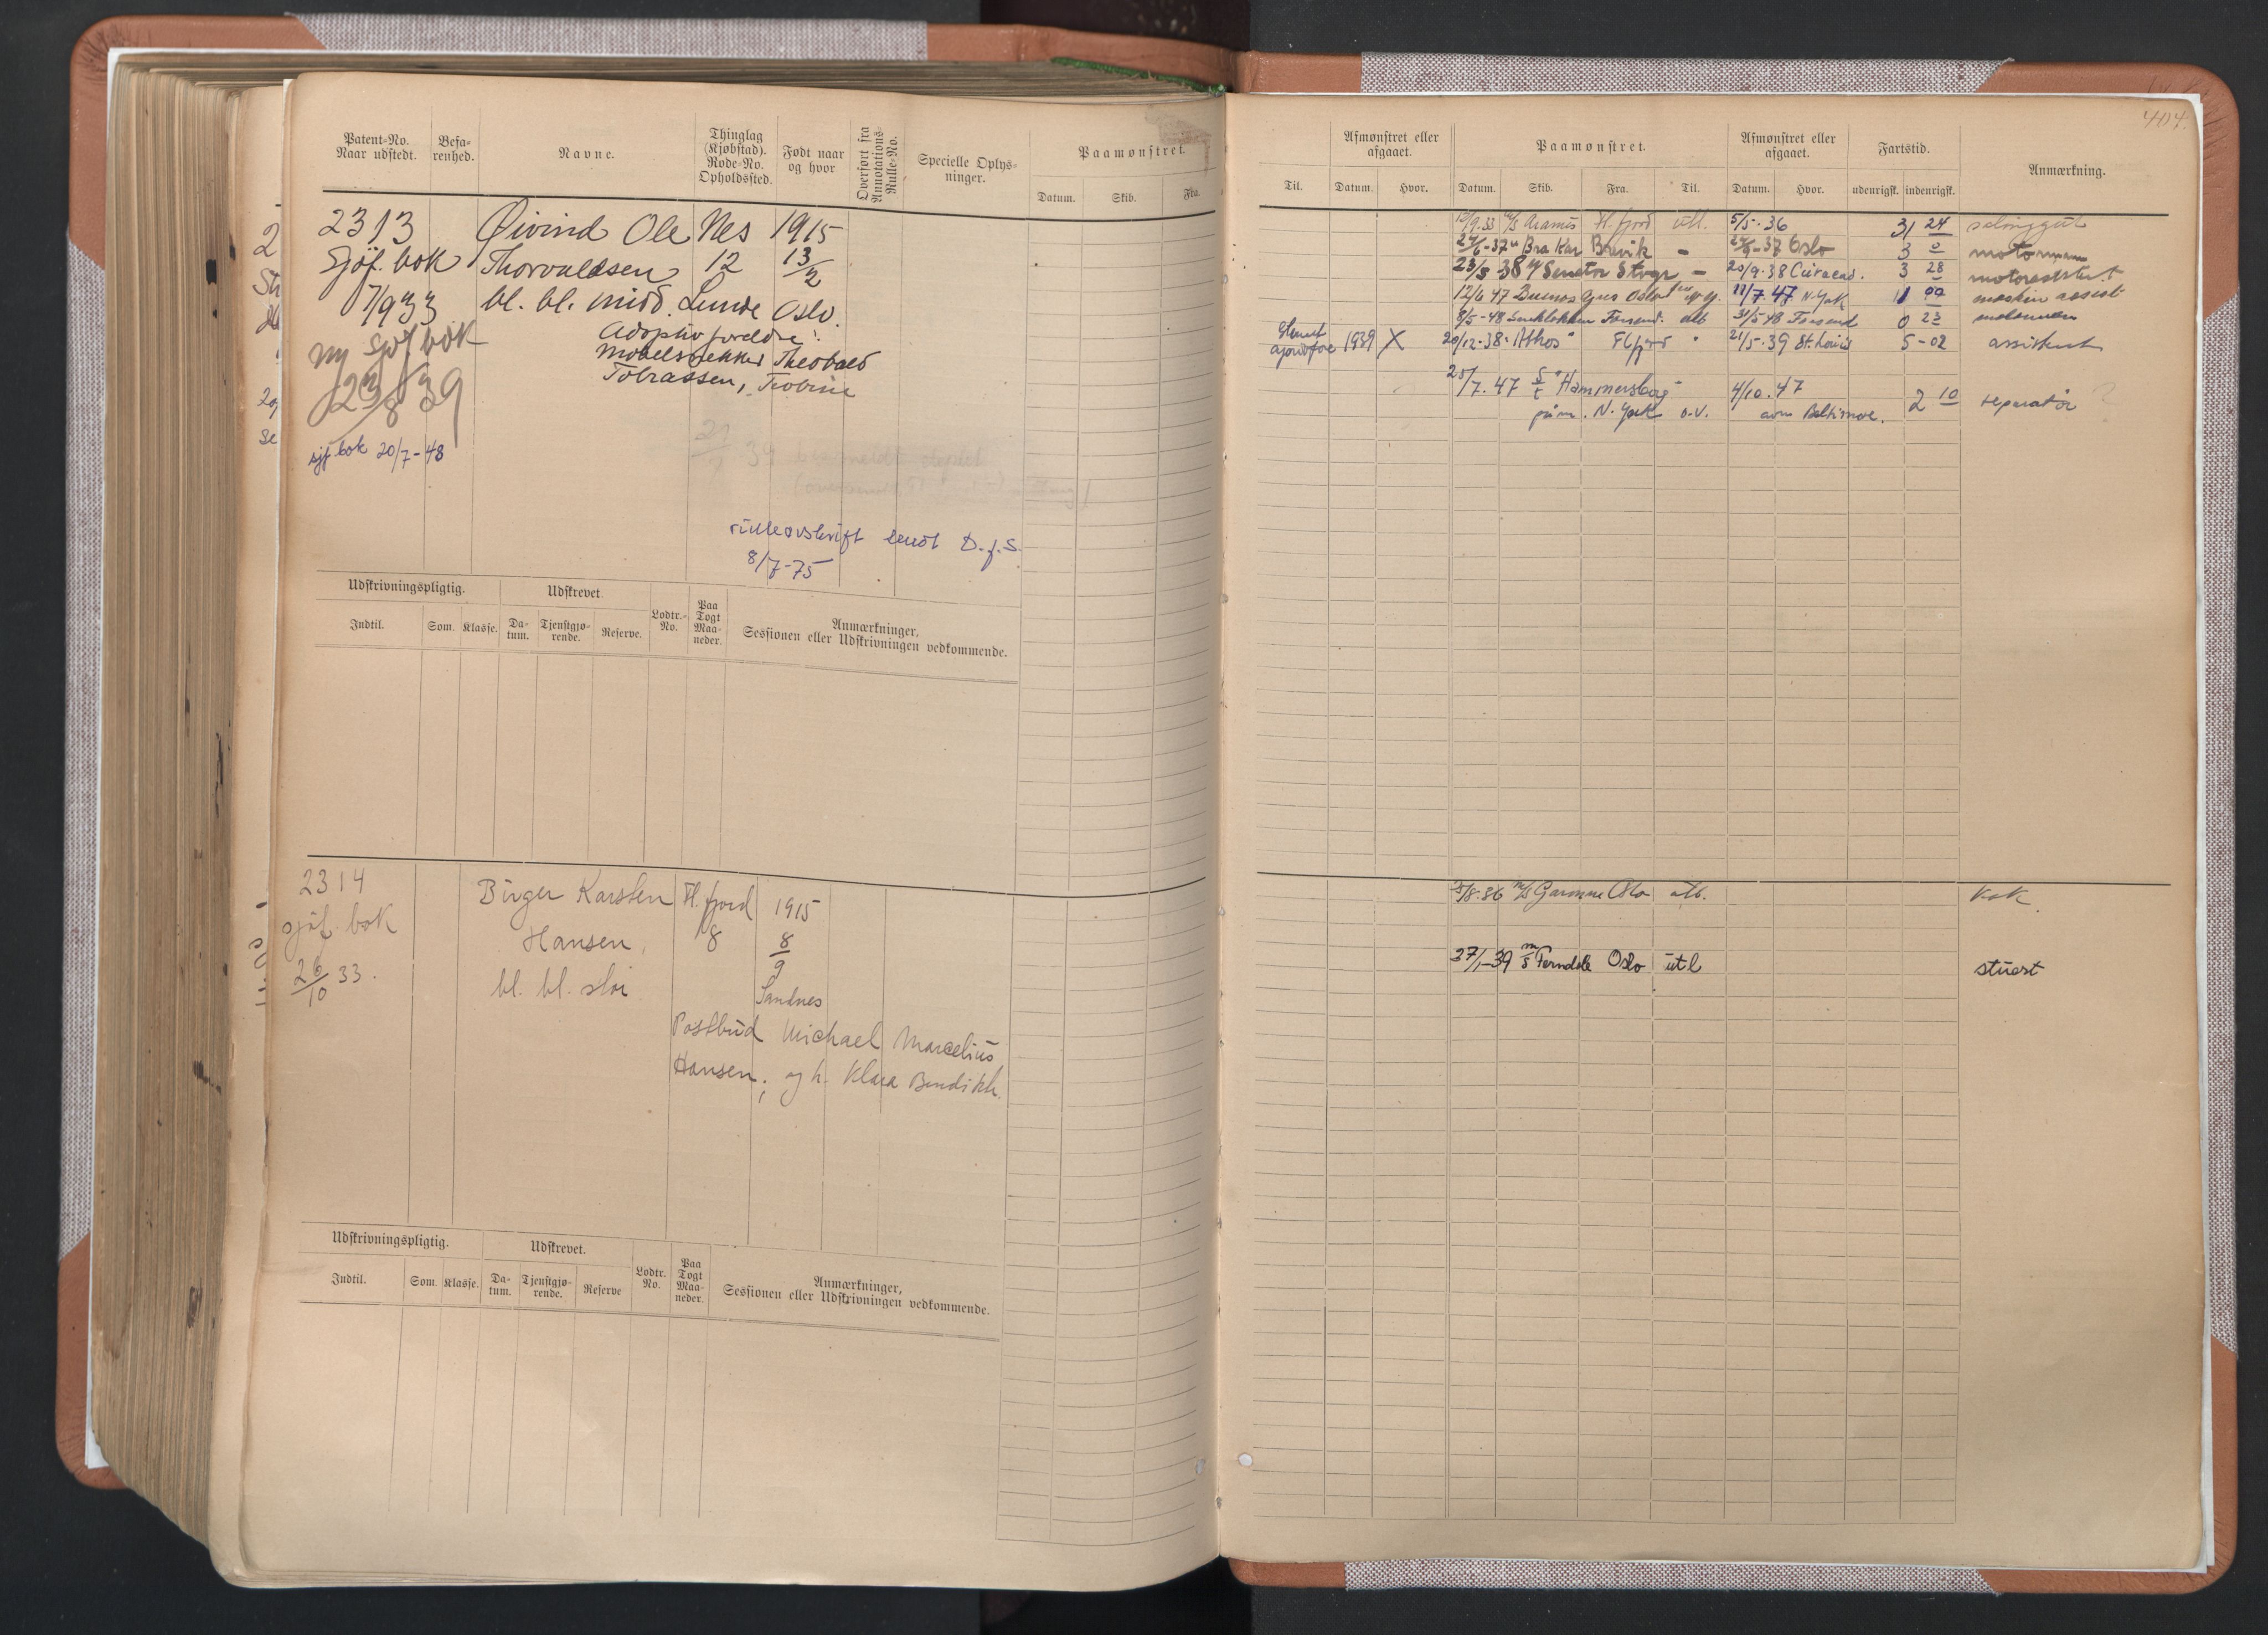 404.
Patent-No. Naar udstedt.
Befa-renhed.
Navne.
Thinglag (Kjøbstad). Rode-No. Opholdssted.
Født naar og hvor
Overført fra Annotations-Rulle-No.
Specielle Oplys-ninger.
Paamønstret.
Datum. Skib. Fra.
2313 Øivind Ole Nes 1915
Sjøf. bok Thorvaldsen 12 13/2
7/9 33 bl. bl. midd. Lunde Oslo.
Adoptivforeldre:
Ny sjøf bok
23/8 39
Møbelsnekker Theobald
Tobiassen,
sjf. bok 20/7-48
rulleavskrift sendt D.f.S.
8/7-75
Udskrivningspligtig. Udskrevet.
Indtil. Som. Klasse. Da-tum. Tjenstgjø-rende. Reserve. Lodtr.-No. Paa Togt Maa-neder.
Anmærkninger,
Sessionen eller Udskrivningen vedkommende.
2314 Birger Karsten Fl.fjord 1915
sjøf. bok Hansen, 8 8/9
26/10 33. bl. bl. slai Sandnes
Postbud Michael Marcelius
Hansen, og h. Klara Bendikte.
Udskrivningspligtig. Udskrevet.
Indtil. Som. Klasse. Da-tum. Tjenstgjø-rende. Reserve Lodtr. No. Paa Togt Maa-neder.
Anmærkninger,
Sessionen eller Udskrivningen vedkommende.
Afmønstret eller afgaaet.
Paamønstret.
Afmønstret eller afgaaet.
Fartstid.
Anmærkning.
Til. Datum. Hvor. Datum. Skib. Fra. Til. Datum. Hvor. udenrigsk. indenrigsk.
m/s Aramis Fl.fjord utl. 5/5-36 31 24
24/6-37 " Bra Kar Brevik - 24/9-37 Oslo 3 0 motormann
23/5 38 m/ Senator Stvgr - 20/9-38 Curacao. 3 28 motorassistent
12/6 47 Buenos Aires Oslo 11/7.47 N. York 1 00 maskin assist
8/5-48 31/5 48 0 23 motormann
1939 X 20/12-38 " Athos " Flfjord " 21/5-39 St. Louis 5-02 assistent
25/7.47 S/t "Hammersborg" 4/10.47 2 10 reparatør
påm. N. York o.v. avm Baltimore.
5/8-36 m/s Garonne Oslo utl. kok
27/1-39 m/s Ferndale Oslo utl stuert